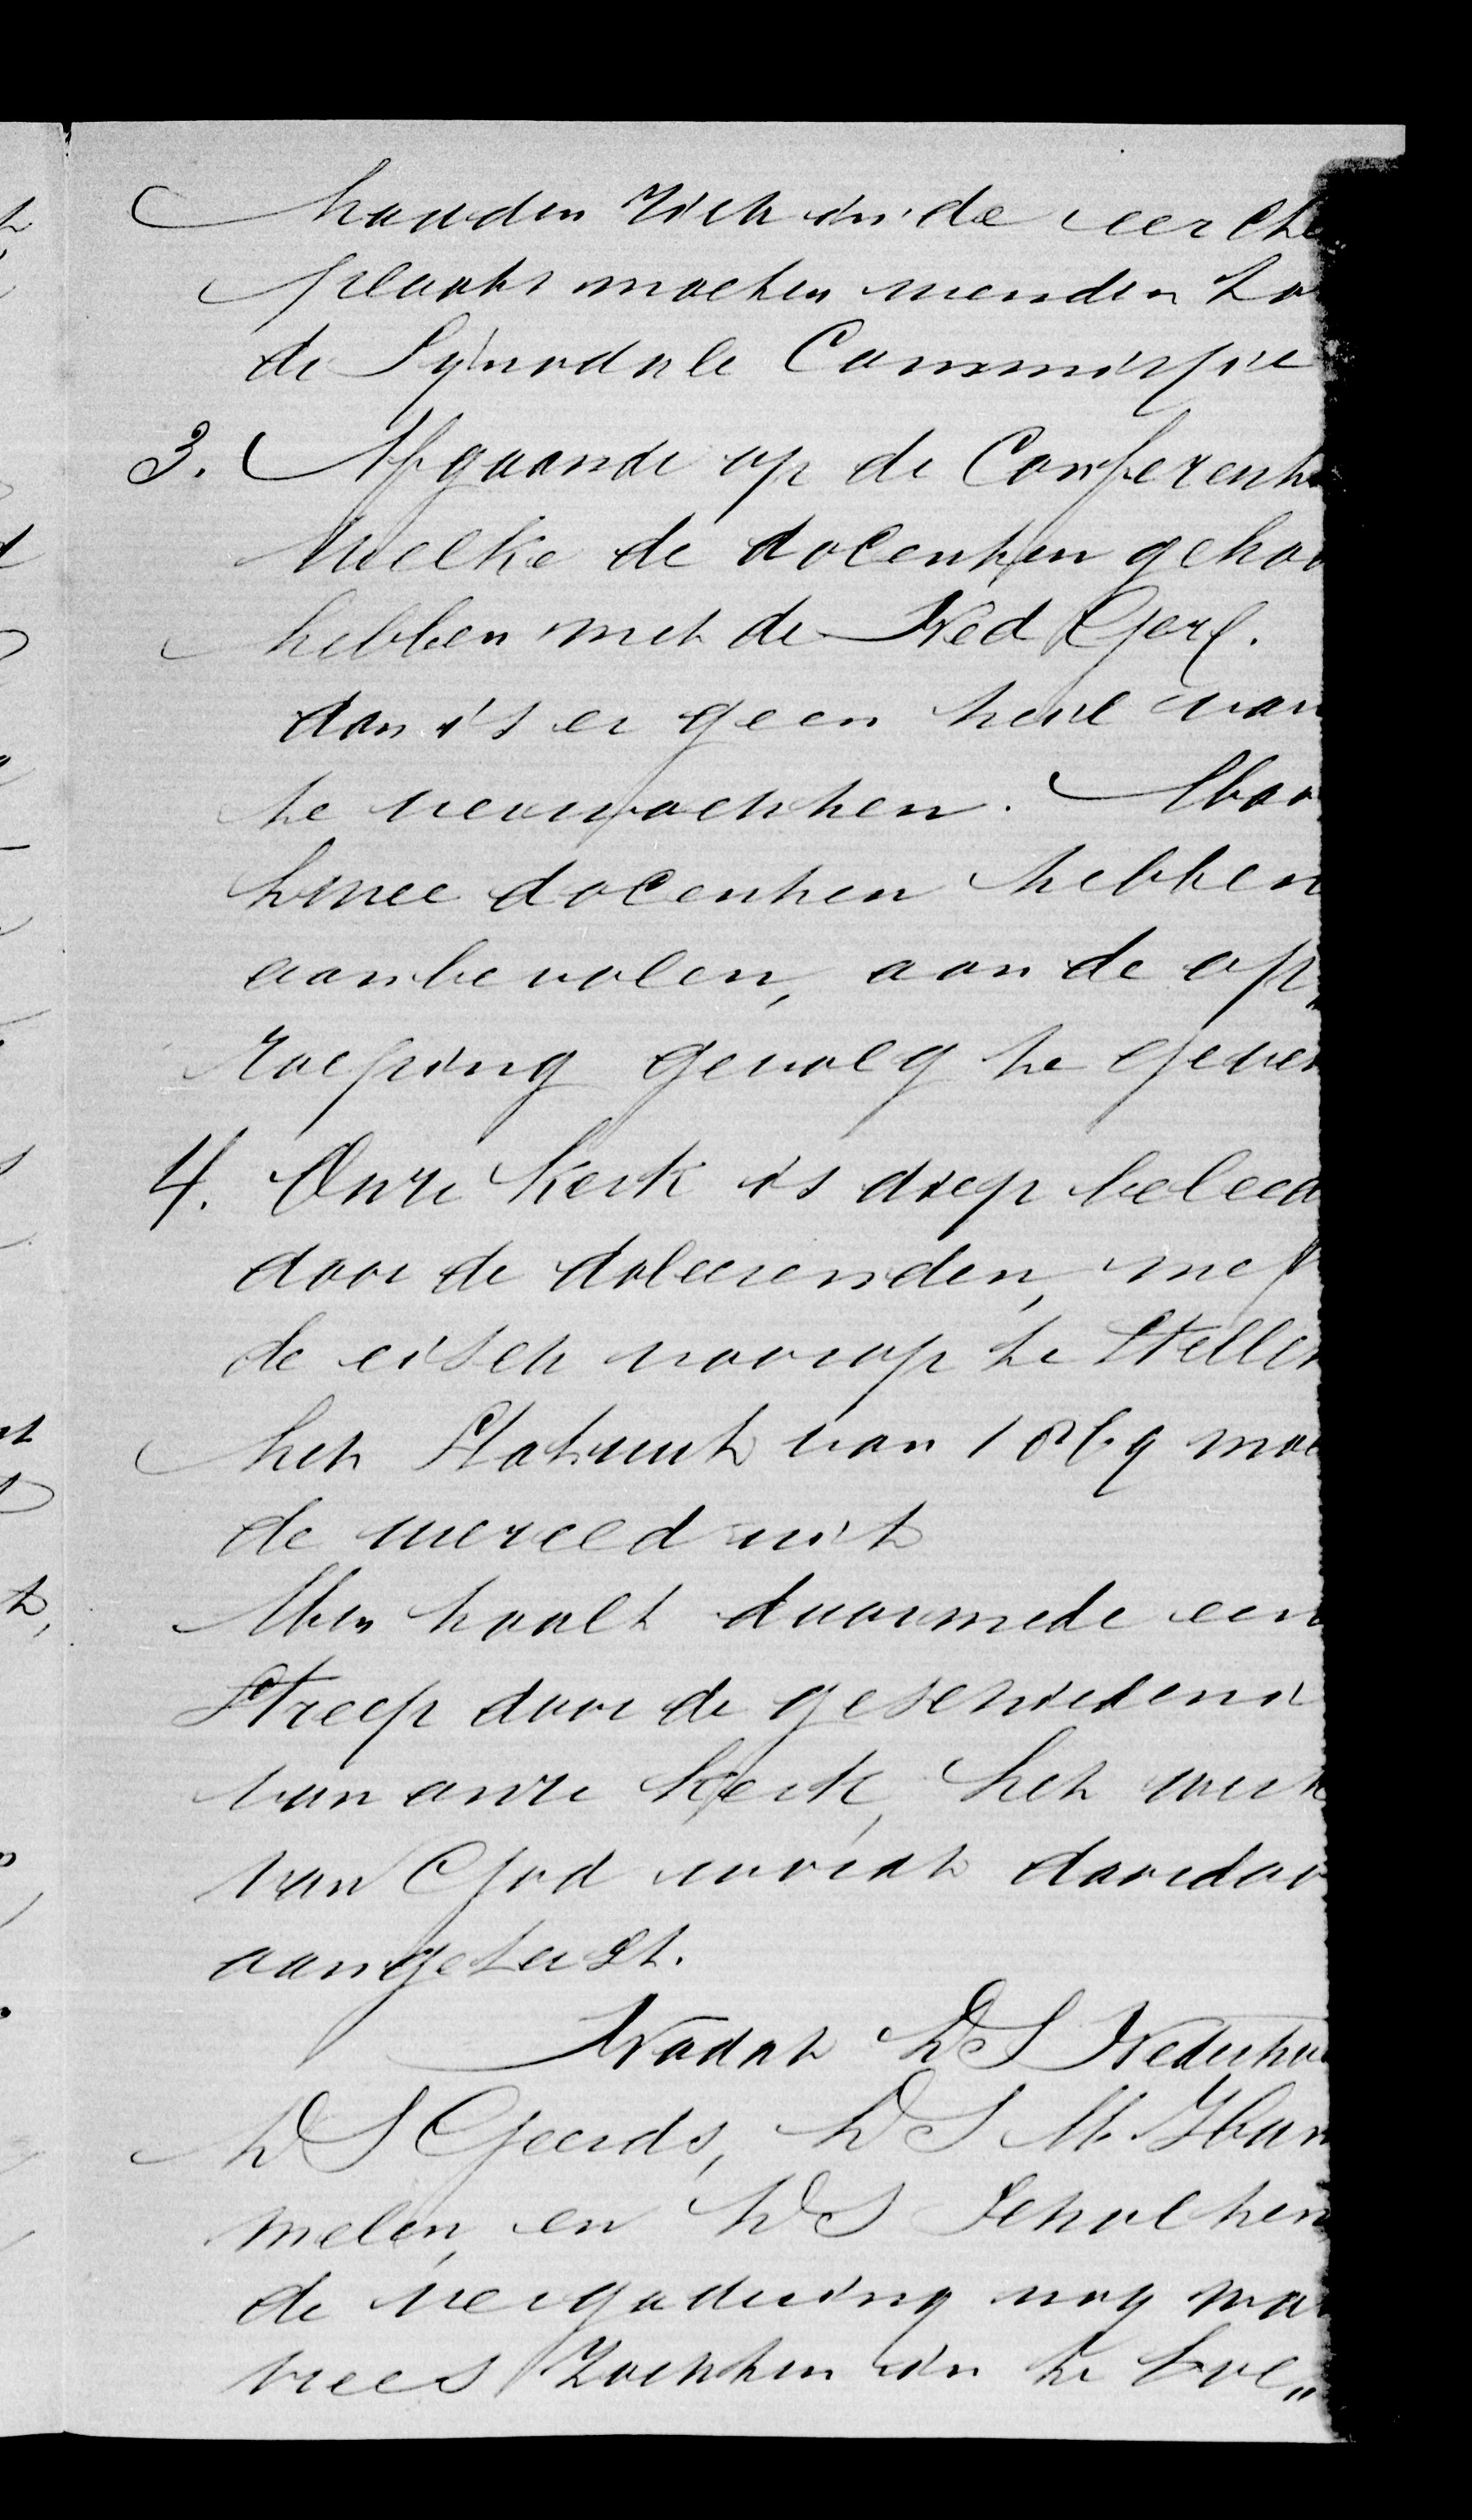 houden zich in de eerste
plaats moeten wenden to
de Synodale Commissie
3. Afgaande op de Conferenti
welke de docenten gehou
hebben met de Ned Geref.
dan is er geen heil van
te verwachten. Maar
twee docenten hebben
aanbevolen, aan de op„
roeping gevolg te geven
4. Onze Kerk is diep beleed
door de doleerenden, met
de eisch voorop te stellen
het Statuut van 1869 moe
de wereld uit
Men haalt daarmede een
streep door de geschiedeni
van onze Kerk, het werk
van God wordt daardoo
aangetast.
Nadat DS Nederho
DS Geerds, DS M. Hum
melen, en DS Scholten
de vergadering nog ma
vrees zochten in te boe„